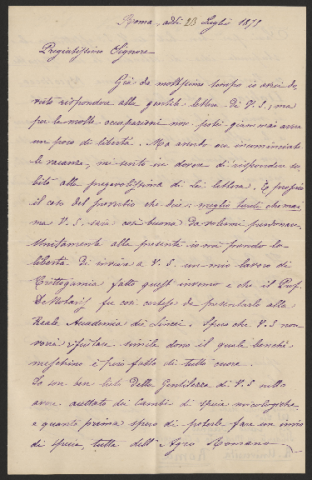 Roma, addì 23 Luglio 1879
Pregiatissimo Signore
Già da moltissimo tempo io avrei do-
vuto rispondere alla gentile lettera di V. S., ma
per le molte occupazioni non potei giammai avere
un poco di libertà. Ma avendo ora incominciato
le vacanze, mi sento in dovere di rispondere su-
bito alla pregiatissima di Lei lettera. È proprio
il caso del proverbio che dice: meglio tardi che mai
ma V. S. sarà così buona da volermi perdonare.
Unitamente alla presente io ora prendo la
libertà di inviare a V. S. un mio lavoro di
Crittogamia fatto quest' inverno e che il Prof.
De Notaris fu così cortese da presentarlo alla
Reale Accademia dei Lincei. Spero che V. S. non
vorrà rifiutare simile dono il quale benchè
meschino è però fatto di tutto cuore.
Io son ben lieto della gentilezza di V. S. nello
aver accettato dei cambi di specie micologiche,
e quanto prima spero di poterle fare un invio
di specie tutte dell' Agro Romano